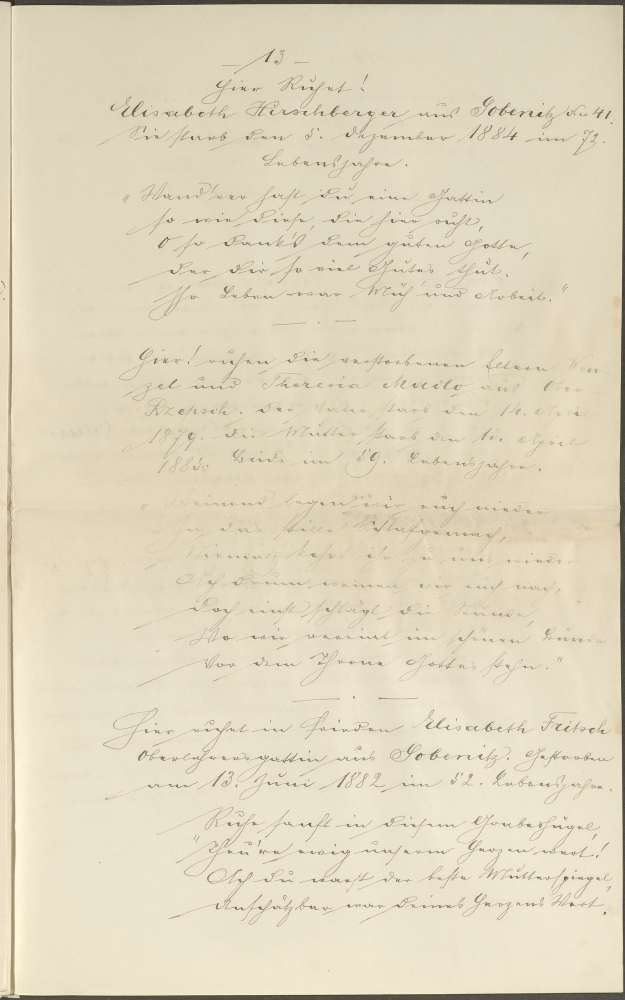 – 13 –
Hier Ruhet!
Elisabeth Hirschberger aus Gobenitz No 41.
Sie starb den 5. Dezember 1884 im 72.
Lebensjahre.
„Wand'rer hast du eine Gattin
so wie diese, die hier ruht,
O so dank's dem guten Gotte,
der dir so viel Gutes thut.
Ihr Leben war Müh' und Arbeit."
Hier! ruhen die verstorbenen Eltern Wen-
zel und Theresia Mailo aus Ober
Rzepsch. Der Vater starb den 14. Mai
1879. Die Mutter starb den 10. April
1885. Beide im 59. Lebensjahre.
„Weinend legen wir euch nieder
in das stille Schlafgemach,
Niemals kehrt ihr zu uns wieder
Ach drum weinen wir euch nach.
Doch einst schlägt die Stunde,
Wo wir vereint im schönen Bunde
Vor dem Throne Gottes stehn."
Hier ruhet in Frieden Elisabeth Fritsch
Oberlehrersgattin aus Gobenitz. Gestorben
am 13. Juni 1882 im 52. Lebensjahre.
Ruhe sanft in diesem Grabeshügel,
„Theu're ewig unserm Herzen wert!
Ach du warst der beste Mutterspiegel,
Unschätzbar war deines Herzens Wert.